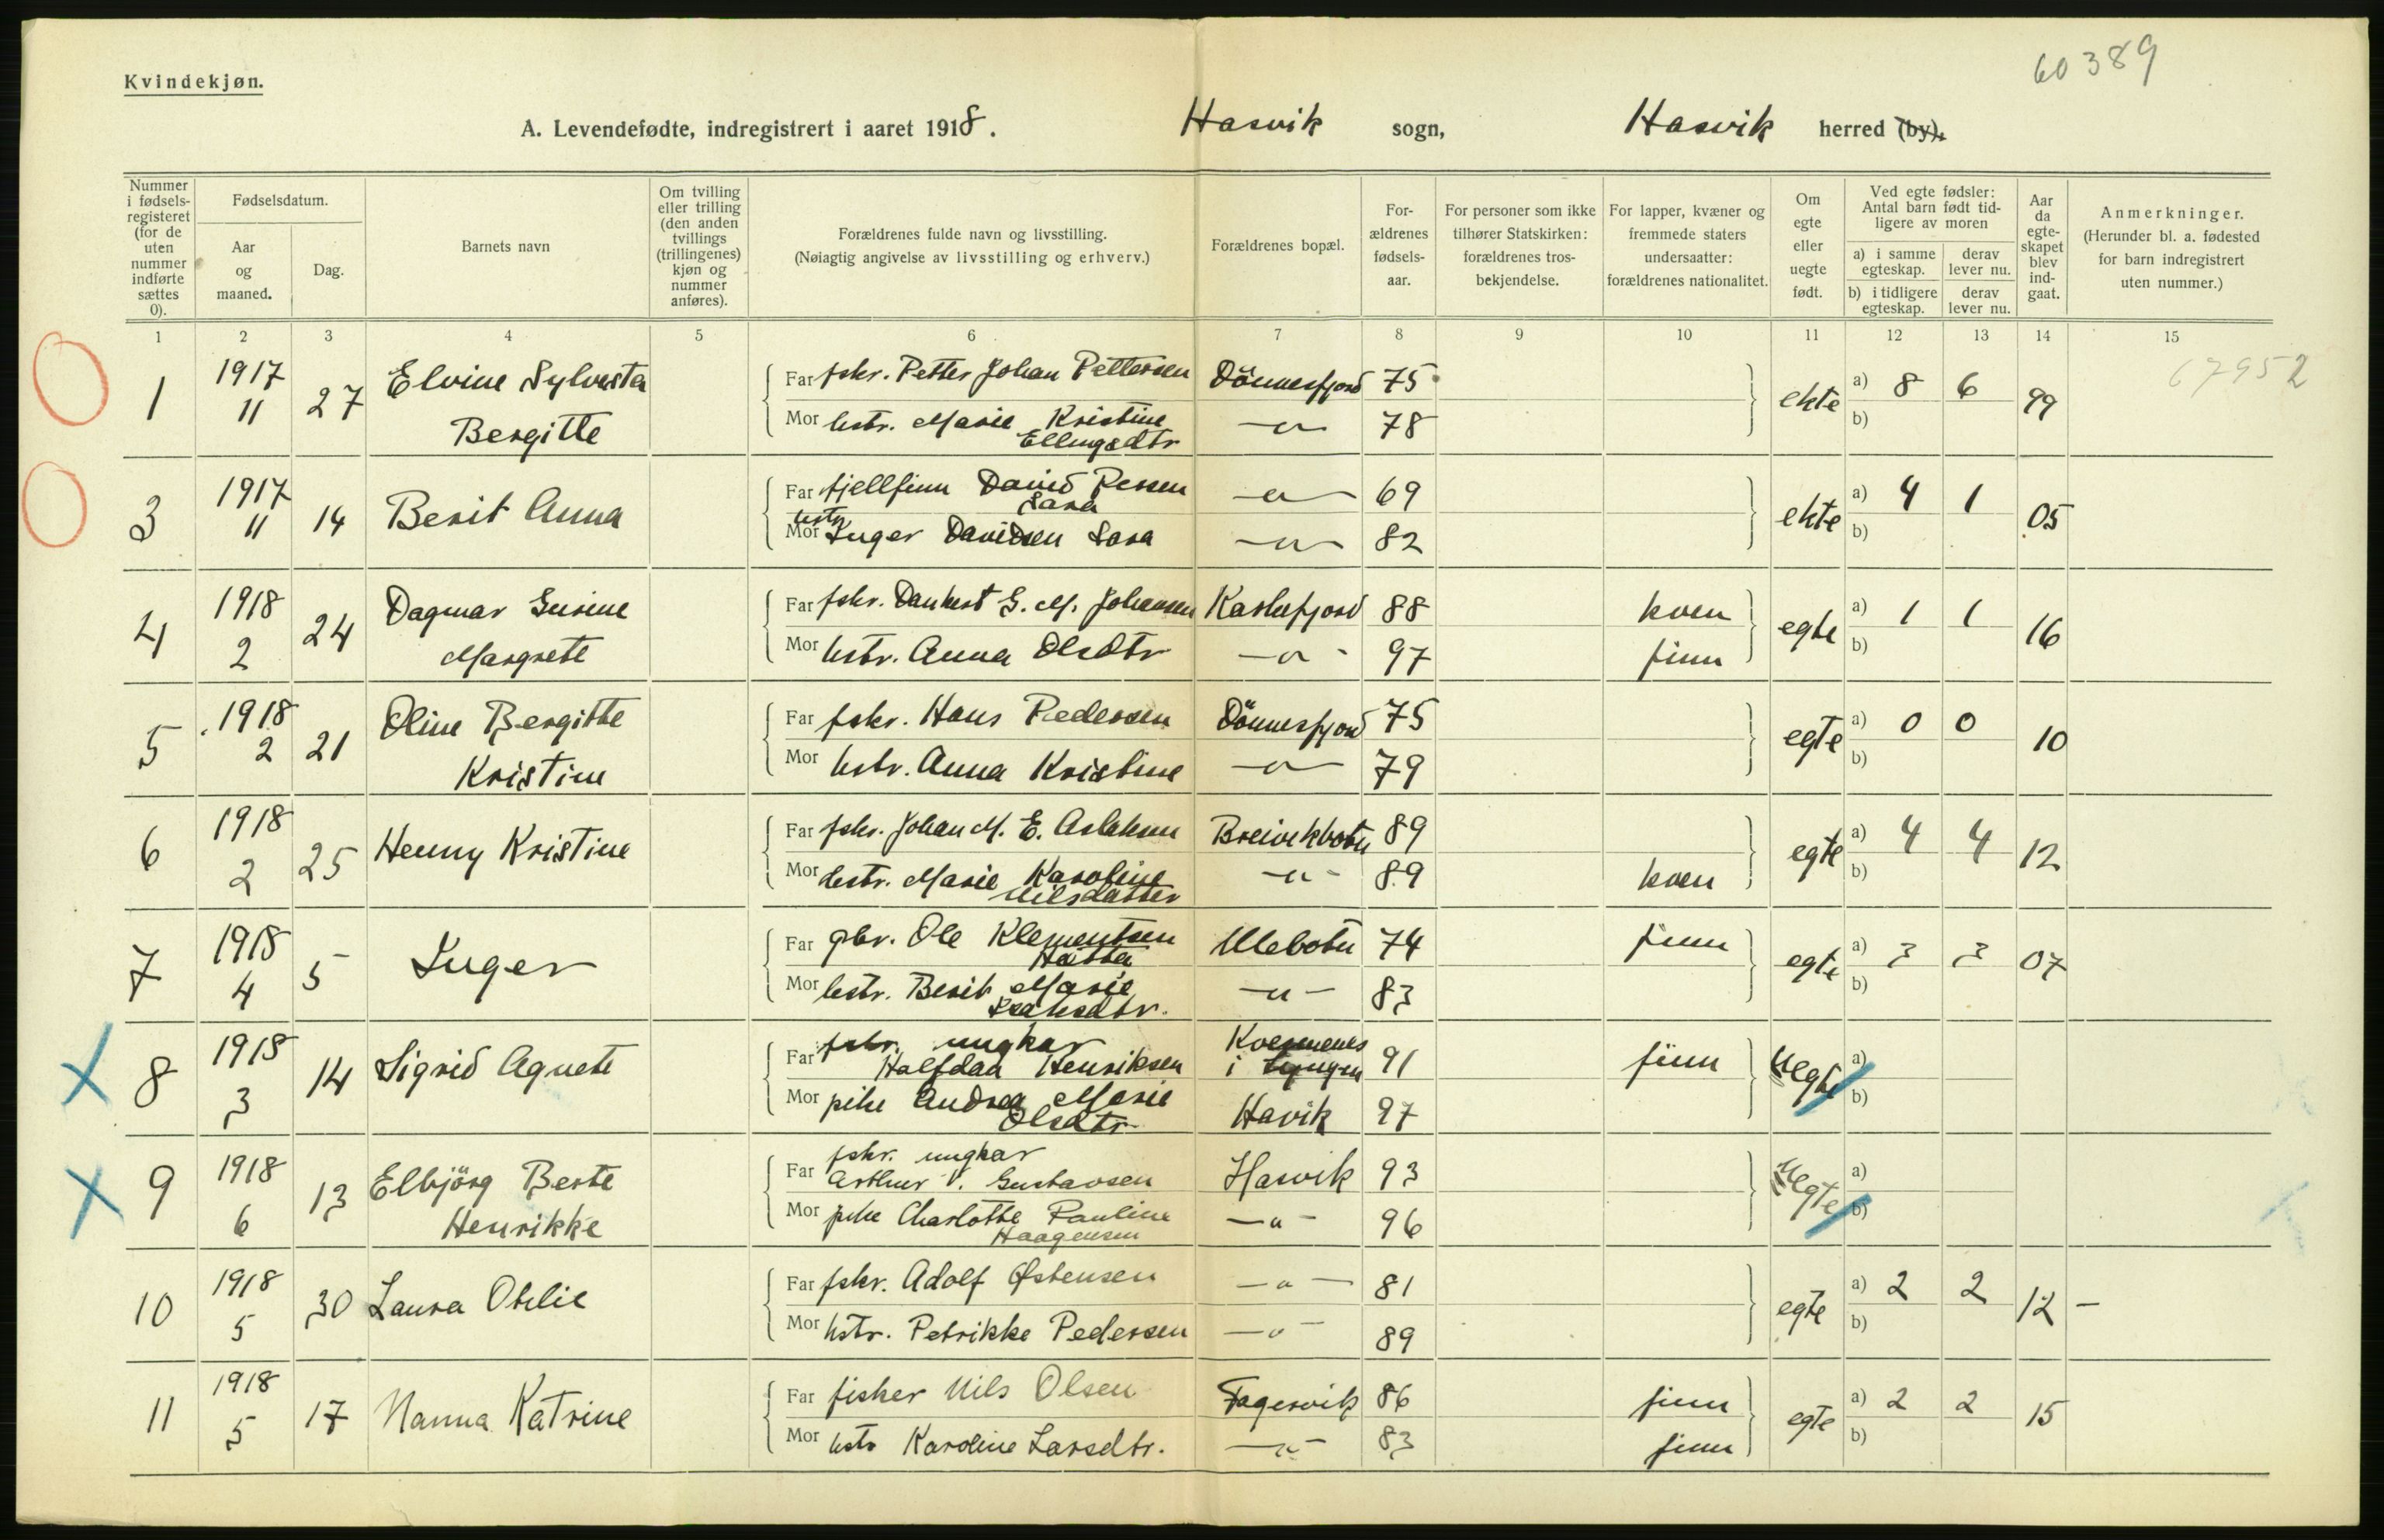 60389
Kvindekjøn.
A. Levendefødte, indregistrert i aaret 1918. Hasvik sogn, Hasvik herred (by).
Nummer i fødselsregisteret (for de uten nummer indførte sættes 0).
Fødselsdatum.
Aar og maaned.
Dag.
Barnets navn
Om tvilling eller trilling (den anden tvillings (trillingenes) kjøn og nummer anføres).
Forældrenes fulde navn og livsstilling.
(Nøiagtig angivelse av livsstilling og erhverv.)
Forældrenes bopæl.
For-ældrenes fødsels-aar.
For personer som ikke tilhører Statskirken: forældrenes tros-bekjendelse.
For lapper, kvæner og fremmede staters undersaatter: forældrenes nationalitet.
Om egte eller uegte født.
Ved egte fødsler: Antal barn født tid-ligere av moren
a) i samme egteskap.
derav lever nu.
b) i tidligere egteskap.
derav lever nu.
Aar da egte-skapet blev ind-gaat.
Anmerkninger.
(Herunder bl. a. fødested for barn indregistrert uten nummer.)
1 2 3 4 5 6 7 8 9 10 11 12 13 14 15
1 1917 11 27 Elvine Sylvesta Bergitte
Far fskr. Petter Johan Pettersen Dönnesfjord 75
Mor hstr. Marie Kristine Ellingsdtr -"- 78
ekte a) 8 6 b) 99 67952
3 1917 11 14 Berit Anna
Far fjellfinn David Persen Sara -"- 69
Mor hstr Inger Davidsen Sara -"- 82
ekte a) 4 1 b) 05
4 1918 2 24 Dagmar Margrete
Far fskr. Dankert G. M. Johansen 88 kven
Mor hstr. Anna Olsdtr -"- 97 finn
egte a) 1 1 b) 16
5 1918 2 21 Oline Bergitte Kristine
Far fskr. Hans Pedersen Dönnesfjord 75
Mor hstr. Anna Kristine -"- 79
egte a) 0 0 b) 10
6 1918 2 25 Henny Kristine
Far fskr. Johan M. E. Aslaksen Breivikbotn 89
Mor hstr. Marie Karoline Nilsdatter -"- 89 kven
egte a) 4 4 b) 12
7 1918 4 5 Inger
Far gbr. Ole Klementsen Hætta Ulebotn 74 finn
Mor hstr. Berit Marie Isaksdtr. -"- 83
egte a) 3 3 b) 07
8 1918 3 14 Sigrid Agnete
Far fskr. ungkar Halfdan Henriksen Kvennenes i Lyngen 91 finn
Mor pike Andrea Marie Olsdtr Havik 97
Uegte a) b)
9 1918 6 13 Elbjörg Berte Henrikke
Far fskr. ungkar Arthur V. Gustavsen Hasvik 93
Mor pike Charlotte Pauline Haagensen -"- 96
Uegte a) b)
10 1918 5 30 Laura Otelie
Far fskr. Adolf Østensen -"- 81
Mor hstr. Petrikke Pedersen -"- 89
egte a) 2 2 b) 12 -
11 1918 5 17 Nanna Katrine
Far fisker Nils Olsen Fagervik 86 finn
Mor hstr Karoline Larsdtr. -"- 83 finn
egte a) 2 2 b) 15